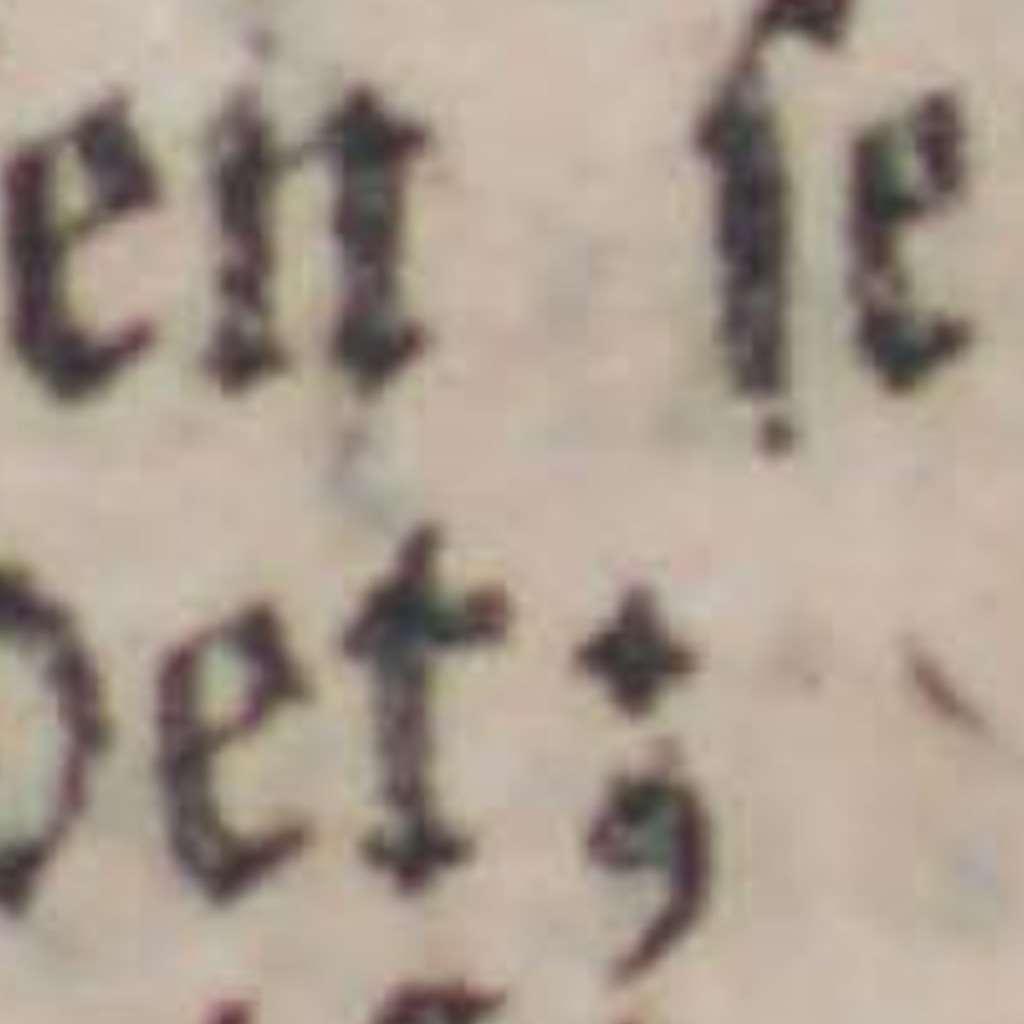 en ſe
et;